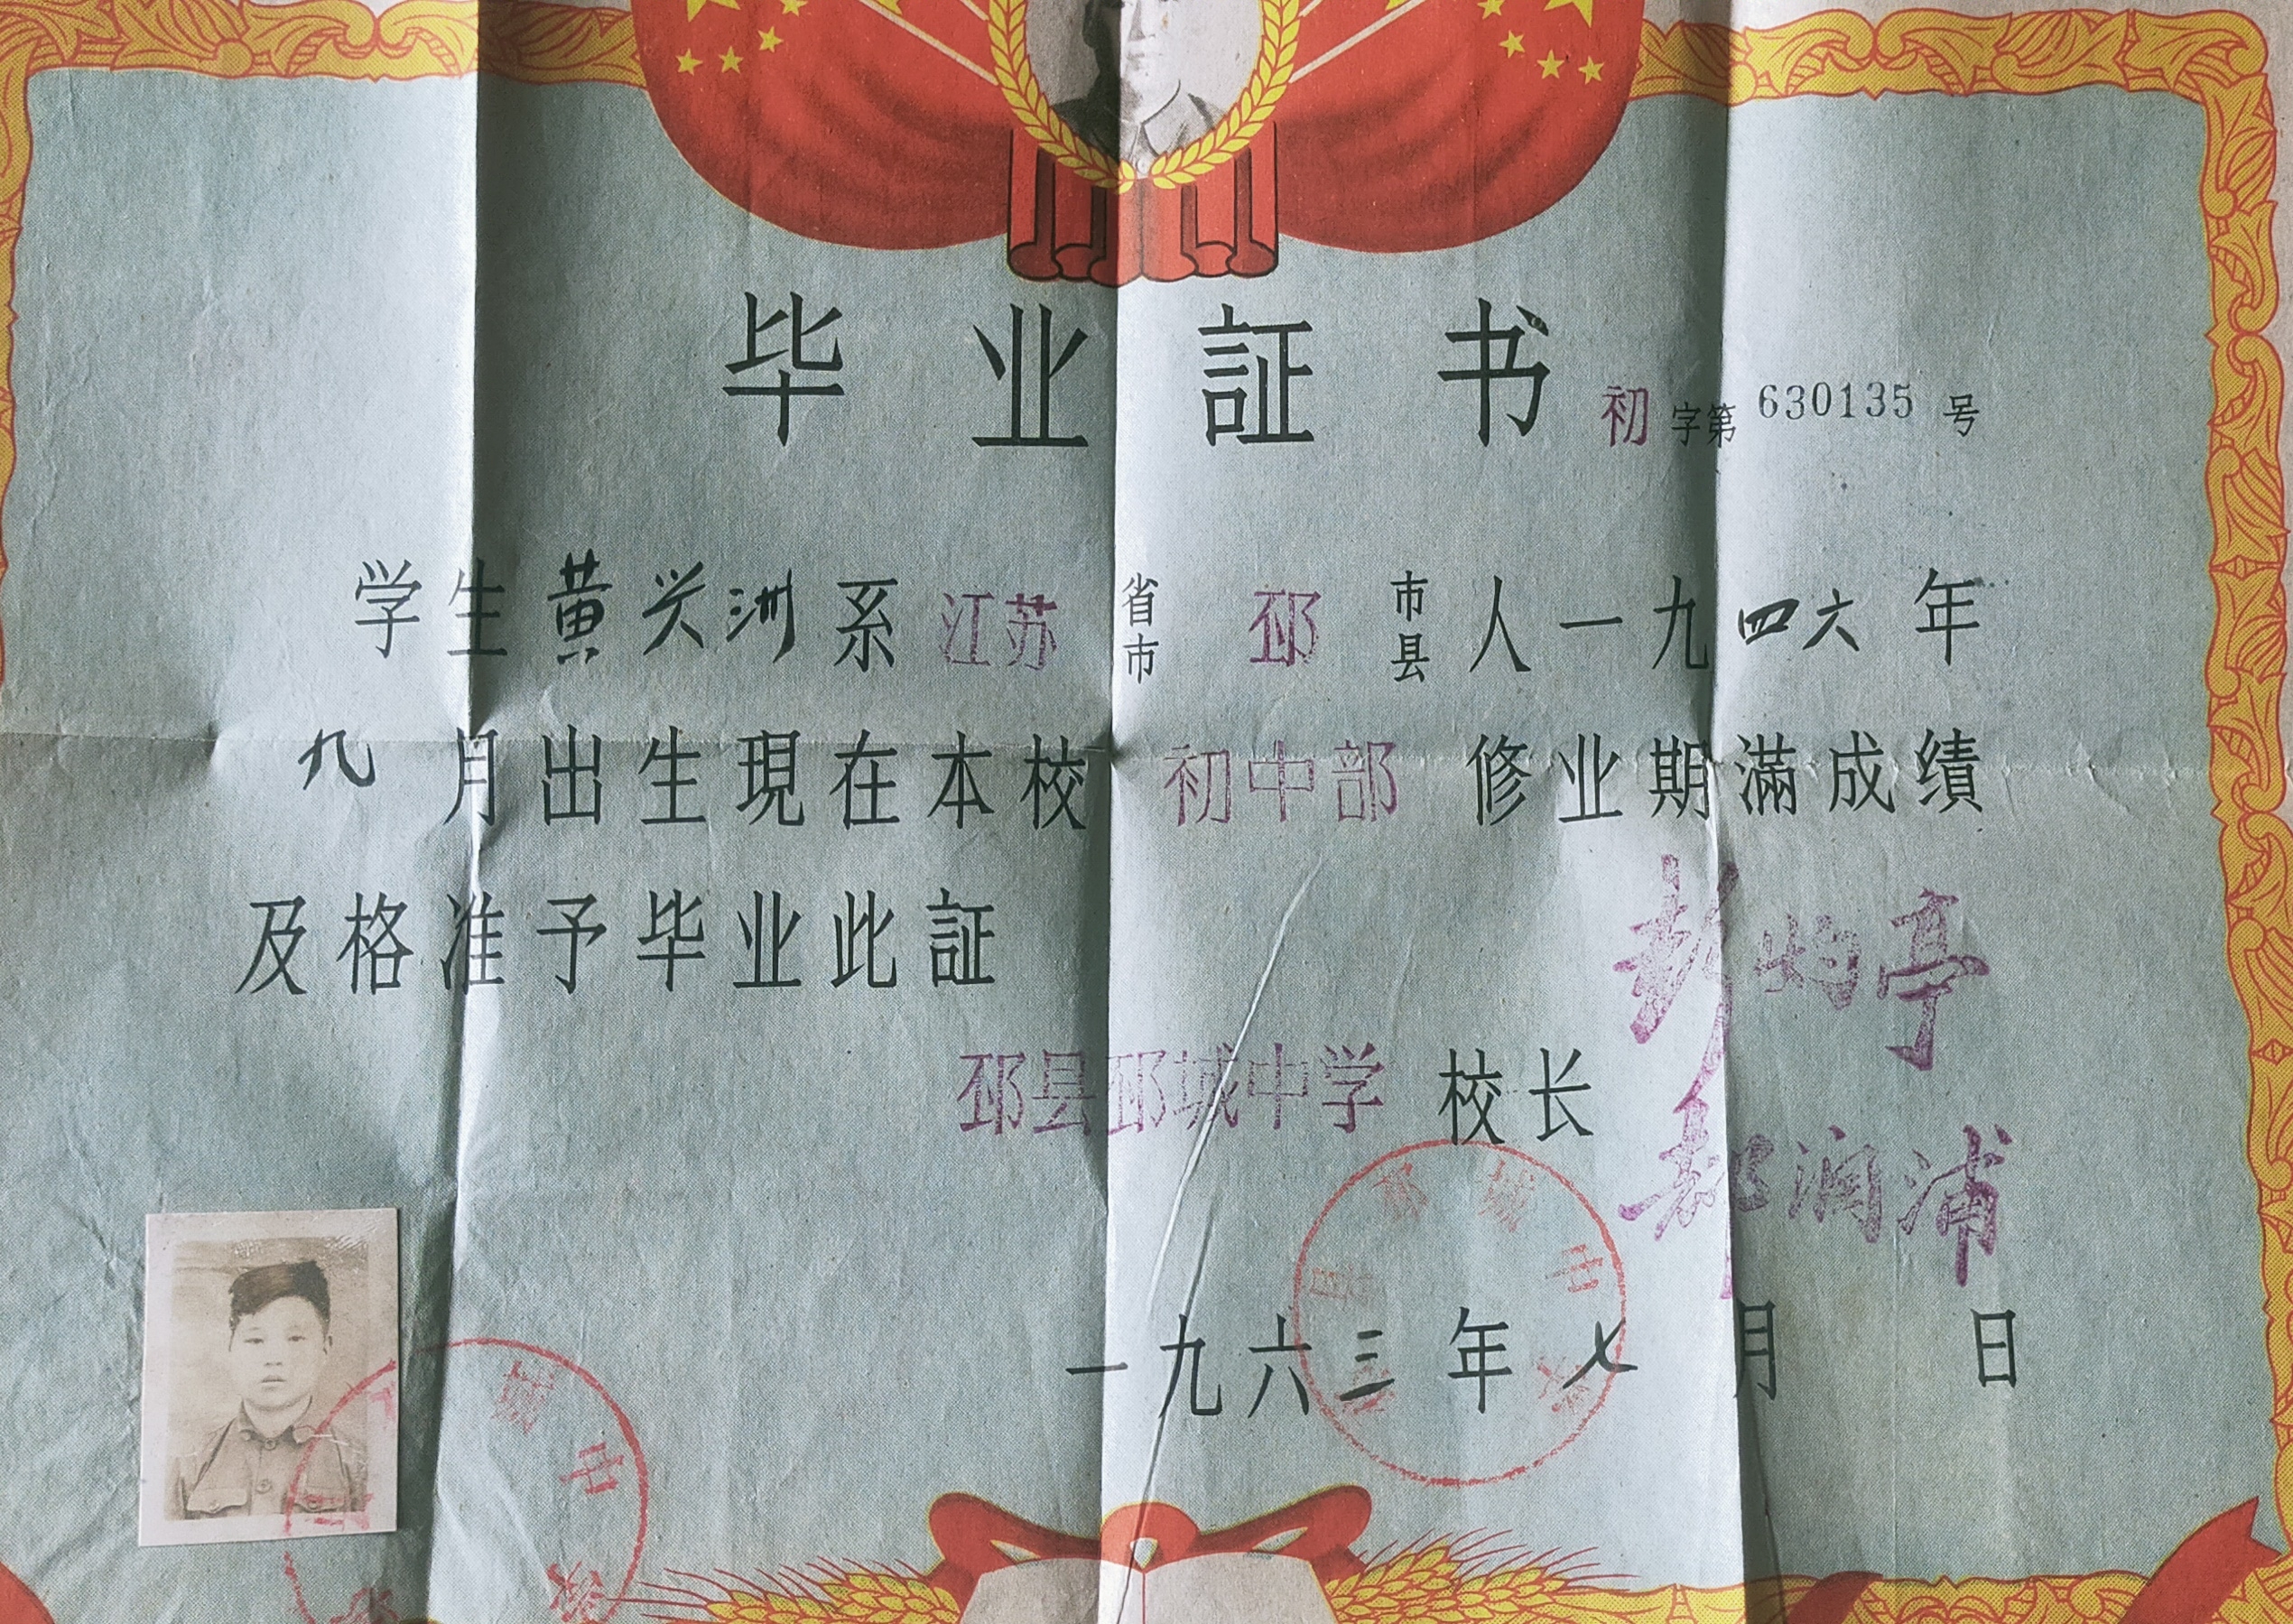 毕业証书
初字第630135号
学生黄兴洲系江苏省市邳市县人一九四六年
九月出生現在本校初中部修业期滿成绩
及格准予毕业此証
邳县邳城中学校长
亭
润浦
一九六三年七月 日